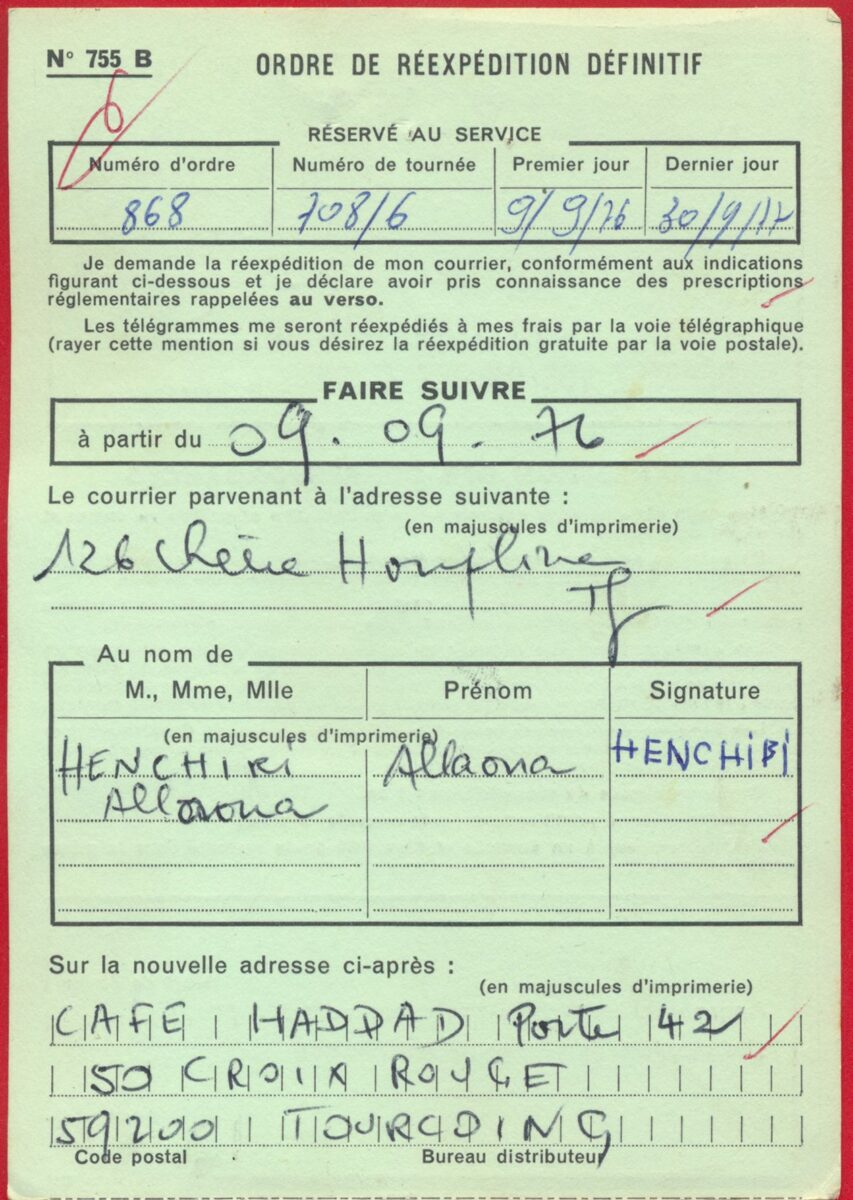 N° 755 B
ORDRE DE RÉEXPÉDITION DÉFINITIF
6
RÉSERVÉ AU SERVICE
Numéro d'ordre Numéro de tournée Premier jour Dernier jour
868 708/6 9/9/76 30/9/77
Je demande la réexpédition de mon courrier, conformément aux indications
figurant ci-dessous et je déclare avoir pris connaissance des prescriptions
réglementaires rappelées au verso.
Les télégrammes me seront réexpédiés à mes frais par la voie télégraphique
(rayer cette mention si vous désirez la réexpédition gratuite par la voie postale).
FAIRE SUIVRE
à partir du 09.09.76
Le courrier parvenant à l'adresse suivante :
(en majuscules d'imprimerie)
126 Houplines
Tg
Au nom de
M., Mme, Mlle Prénom Signature
(en majuscules d'imprimerie)
HENCHIRI Allaoua HENCHIBI
Allaoua
Sur la nouvelle adresse ci-après :
(en majuscules d'imprimerie)
CAFE HADDAD Porte 42
50 CROIX ROUGE
59200 TOURCOING
Code postal Bureau distributeur